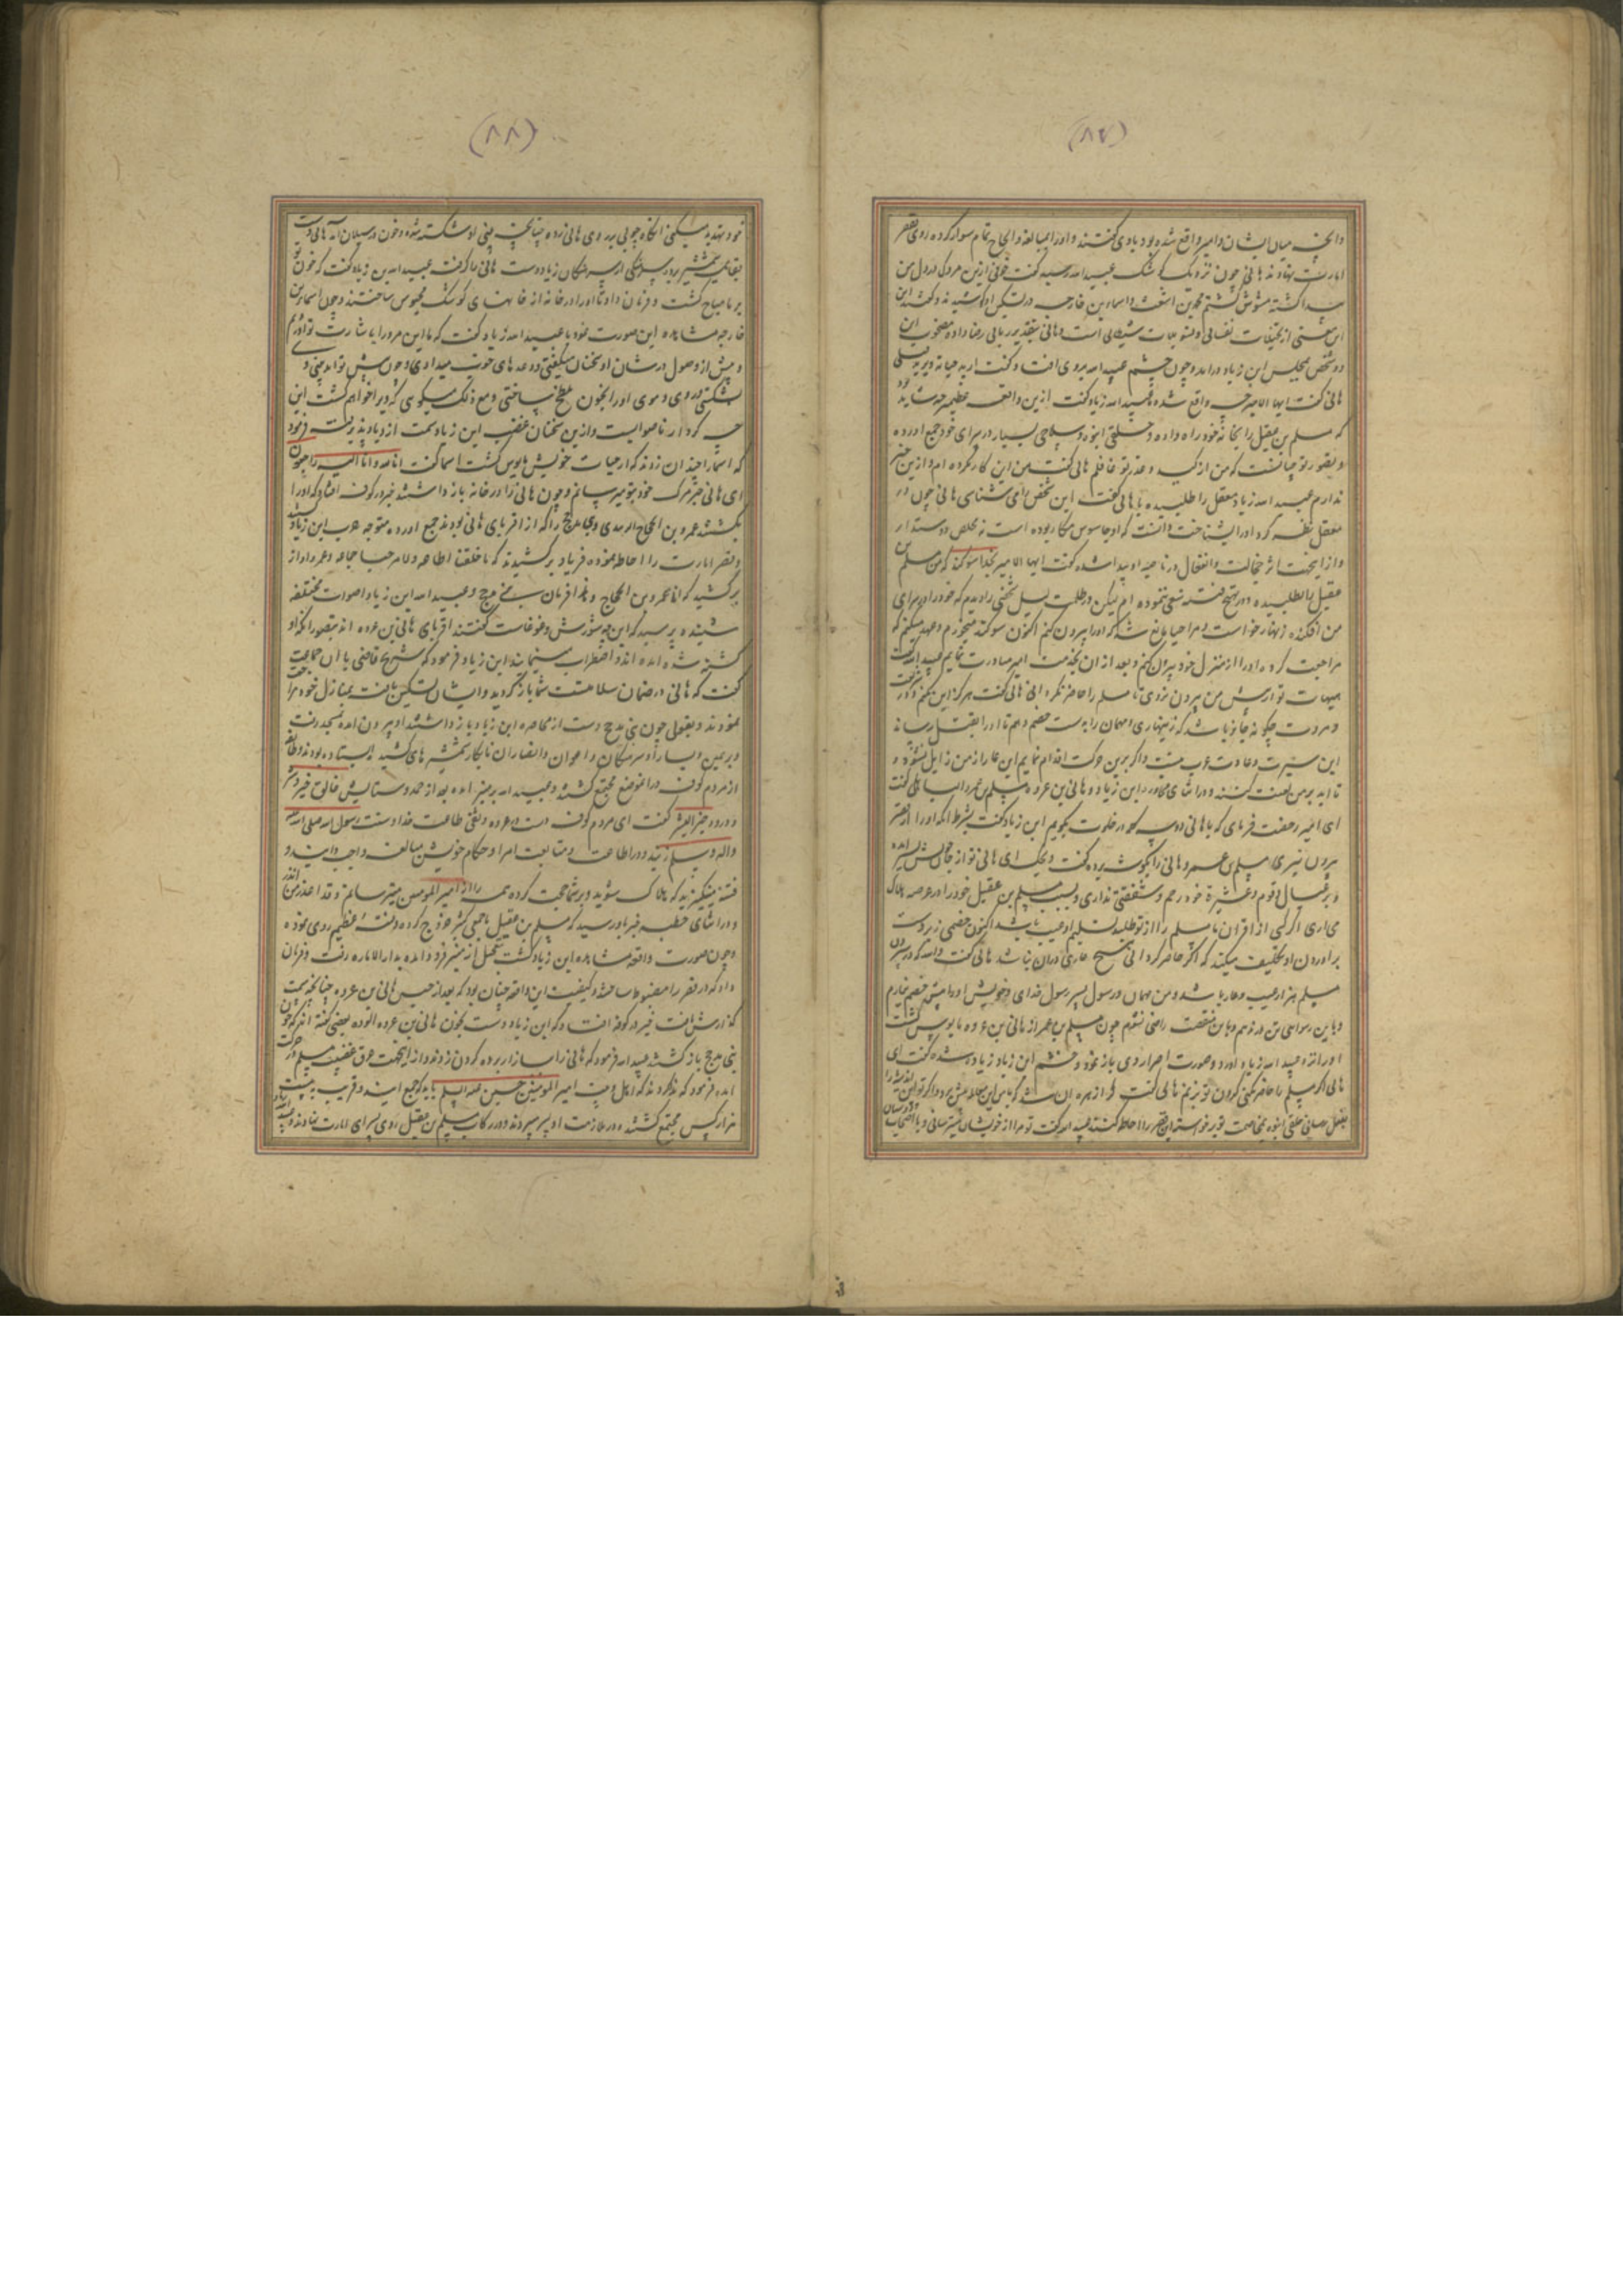 (۸۷)
وانچه میان ایشان و امیر واقع شده بود باوی گفتند و او را بمبالغه و الحاح تمام سوار کرده روی بقصر
امارت نهادند هانی چون نزدیک کوشک عبیدالله رسید گفت خوفی ازین مردک در دل من
پیدا گشته مشوش گشتم محمد بن اشعث و اسماء بن خارجه در تسکین او کوشیدند و گفتند این
معنی از تخیلات نفسانی و تسویلات شیطانی است و هانی بتقدیر ربانی رضا داده مصحوب این
دو شخص بمجلس ابن زیاد درامد و چون چشم عبیدالله بروی افتاد گفت
هانی گفت ایها الامیر چه واقع شده عبیدالله زیاد گفت ازین واقعه عظیمتر چه شاید بود
که مسلم بن عقیل را بخانه خود راه داده و خلقی انبوه و سلاحی بسیار در سرای خود جمع اورده
و تصور تو چنانست که من از کید و غدر تو غافلم هانی گفت من این کار نکرده ام و ازین خبر
ندارم عبیدالله زیاد معقل را طلبیده با هانی گفت این شخص را می شناسی هانی چون در
معقل نظر کرد او را بشناخت و دانست که او جاسوس مکار بوده است نه مخلص دوستدار
و از اینجهت اثر خجالت و انفعال در ناصیه او پیدا شده گفت ایها الامیر بخدا سوگند که من مسلم بن
عقیل را نطلبیده و در تهیج فتنه سعی ننموده ام لیکن در ظلمت لیل شخصی را دیدم که خود را در سرای
من افکنده زنهار خواست و مرا حیا مانع شد که او را بیرون کنم اکنون سوگند میخورم و عهد میکنم که
مراجعت کرده او را از منزل خود بیرون کنم و بعد از ان بخدمت امیر مبادرت نمایم عبیدالله گفت
هیهات تو از پیش من بیرون نروی تا مسلم را حاضر نگردانی هانی گفت هرگز این نکنم و در شریعت
و مروت چگونه جایز باشد که زینهاری و مهمان را بدست خصم دهم تا او را بقتل رساند
این سیرت و عادت عرب نیست و اگر برین حرکت اقدام نمایم این عار از من زایل نشود و
تا ابد بر من لعنت کنند و در اثنای محاوره ابن زیاد و هانی بن عروه مسلم بن عمرو الباهلی گفت
ای امیر رخصت فرمای که با هانی دو سه کلمه در خلوت بگویم ابن زیاد گفت بشرط انکه او را از قصر
بیرون نبری مسلم بن عمرو هانی را بگوشه برده گفت ویحک ای هانی تو از جان سیر امده
و بر عیال و قوم و عشیرة خود رحم و شفقتی نداری و بسبب مسلم بن عقیل خود را در عرصه هلاک
می اری اگر کسی از اقران ما مسلم را از تو طلبد تسلیم او عیب باشد اکنون خصمی زبردست
براوردن او تکلیف میکند که اگر حاضر گردانی هیچ عاری دران نباشد هانی گفت والله که در سپردن
مسلم هزار عیب و عار باشد و من مهمان و رسول پسر رسول خدای و خویش او را بدست خصم نیارم
و باین رسوایی تن در ندهم و باین منقصت راضی نشوم چون مسلم بن عمر از هانی بن عروه مایوس گشت
او را نزد عبیدالله زیاد اورد و صورت اصرار وی باز نمود و خشم ابن زیاد زیاده شده گفت ای
هانی اگر مسلم را حاضر نکنی گردن تو بزنم هانی گفت کرا زهره ان باشد که با من این معامله پیش برد و اگر تو این اندیشه را
بفعل رسانی خلقی انبوه بمخاصمت تو برخواسته این قصر را احاطه کنند عبیدالله گفت تو مرا از خویشان میترسانی و با
(۸۸)
خود تهدید میکنی انگاه چوبی بر روی هانی زده چنانچه بینی او شکسته شده و خون در سیلان امد هانی دست
بقایمه شمشیر برد سرهنگی از سرهنگان زیاد دست هانی را گرفت عبیدالله بن زیاد گفت که خون تو
بر ما مباح گشت و فرمان داد تا او را در خانه از خانهای کوشک محبوس ساختند و چون اسماء بن
خارجه مشاهده این صورت نمود با عبیدالله زیاد گفت که ما این مرد را باشارت تو اوردیم
و پیش از وصول در شان او سخنان میگفتی و وعده های خوب میدادی و چون پیش تو امد بینی وی
بشکستی و روی و موی او را بخون مطلخ ساختی و مع ذلک میگویی که ویرا خواهم کشت این
چه کردار ناصوابست و ازین سخنان غضب ابن زیاد سمت ازدیاد پذیرفت فرمود
که اسما را چندان زدند که از حیات خویش مایوس گشت اسما گفت انا لله و انا الیه راجعون
ای هانی خبر مرگ خود بتو میرسانم و چون هانی را در خانه باز داشتند خبر در کوفه افتاد که او را
بکشتند عمرو بن الحجاج الزبیدی و بنی مذحج را که از اقربای هانی بودند جمع اورده متوجه حرب ابن زیاد شد
و قصر امارت را احاطه نموده فریاد برکشیدند که ما خلعنا الطاعه و لا مرحبا جماعه و عمرو اواز
برکشید که انا عمرو بن الحجاج و هذا فرسان بنی مذحج و عبیدالله ابن زیاد اصوات مختلفه
شنیده پرسید که این چه شورش و غوغاست گفتند اقربای هانی بن عروه اند بتصور انکه او
کشته شده امده اند و اضطراب مینمایند ابن زیاد فرمود که شریح قاضی با ان جماعت
گفت که هانی در ضمان سلامتست شما باز گردید و ایشان تسکین یافته بمنازل خود مراجعت
نمودند و بقولی چون بنی مذحج دست از محاصره ابن زیاد باز داشتند او بیرون امده بمسجد رفت
و بر یمین و یسار او سرهنگان و اعوان و انصار ان نابکار شمشیرهای کشیده ایستاده بودند و طایفه
از مردم کوفه دران موضع مجتمع گشتند و عبیدالله بر منبر امده بعد از حمد و ستایش خالق خیر و شر
و درود خیر البشر گفت ای مردم کوفه دست در عروه وثقی طاعت خدا و سنت رسول الله صلی الله علیه
واله وسلم زنید و در اطاعت و متابعت امرا و حکام خویش مبالغه واجب دانید و
فتنه مینگیزید که هلاک شوید و بر شما حجت کرده همه را از امیر المومنین میترسانم و قد اعذر من انذر
و در اثنای خطبه خبر باو رسید که مسلم بن عقیل با جمعی کثیر خروج کرده و فتنه عظیم روی نموده
و چون صورت واقعه مشاهده ابن زیاد گشت بتعجیل از منبر فرود امده بدار الاماره رفت و فرمان
داد که در قصر را مضبوط ساختند و کیفیت این واقعه چنان بود که بعد از حبس هانی بن عروه چنانچه سمت
گذارش یافت خبر در کوفه افتاد که ابن زیاد دست بخون هانی بن عروه الوده بعضی گفته اند که چون
بنی مذحج باز گشتند عبیدالله فرمود که هانی را ببازار برده گردن زدند و از اینجهت عرق غضب مسلم در حرکت
امده فرمود که ندا کردند که اهل بیت امیر المومنین حسین علیه السلم باید که جمع ایند و قریب به بیست
هزار کس مجتمع گشتند و در ملازمت او بسر بردند و در رکاب مسلم بن عقیل روی بسرای امارت نهادند و